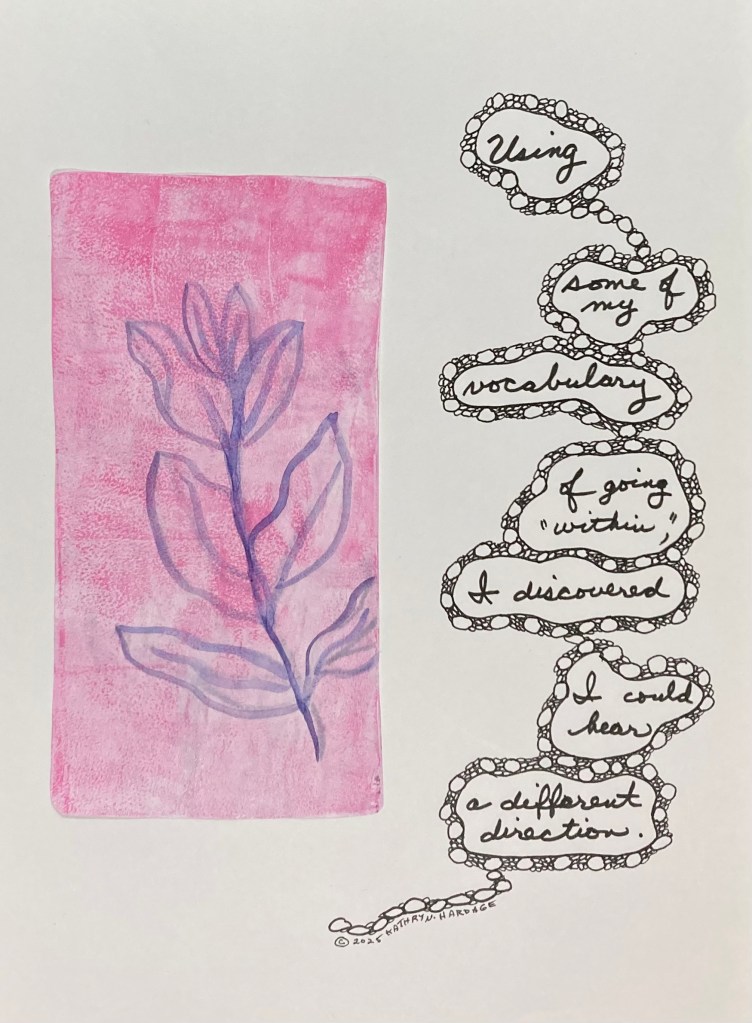 Using
some of
my
vocabulary
of going
"within,"
I discovered
I could
hear
a different
direction.
© 2025 KATHRYN N. HARDAGE